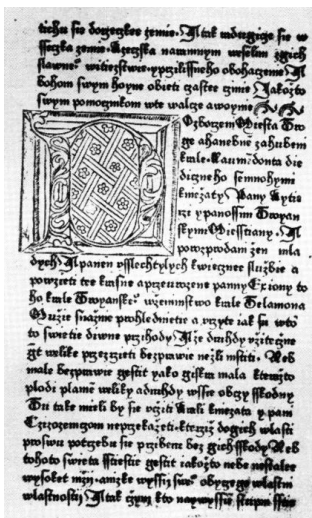 tichu sie dogegkee zemie. A tak radugige sie w
sseczka zemie. Rzegska naramnym weselim z gich
slawne witiezstwie. y przilissneho obohacenie. A
bohom swym hoyne obieti gastee czinie Jakozto
swym pomocnikom wte walcze a woynie
Ozborzem Miesta Tro
ge ahanebne zahubem
krale. Laumedonta die
diczneho semnohymi
kniezaty Pany Ryti
rzi y panossim Troyan
skymi Miesstiany. A
porozprodam zen mla
dych A panen vsslechtylych kwiecznee sluzbie a
powzieti tee krasne a przeurozene panny Eziony to
ho krale Troyanskeº wzemnstwo krale Telamona
Muzie snazne prohlednietie a vzyte iak su wto
to swietie diwne przihody. A ze druhdy vziteczne
gt welike przezrzeti bezprawie nezli mstiti. Neb
male bezprawie gestit yako giskra mala kterazto
plodi plamen weliky a druhdy wssie obczy sskodny
Tu take mieli by sie vziti krali kniezata y pani
Czizozemgom neprzekazeti. kterziz dogich wlasti
proswu potrzebu sie przibern bez gich sskody Neb
tohoto swieta sstiestie gestit iakozto nebe nestalee
wysokee mzn. amzke wyssi swº obyczege wlastni
wlastnosti A tak czym kto naywyssie stupn sstie